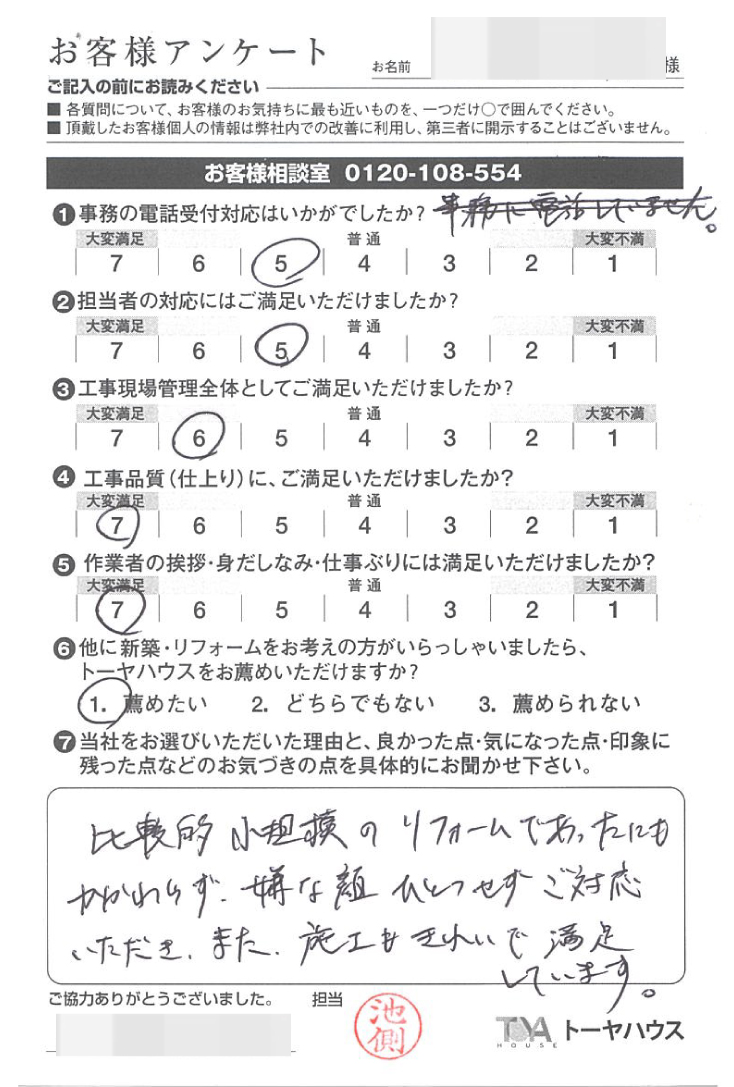 お客様アンケート
お名前 様
ご記入の前にお読みください
■ 各質問について、お客様のお気持ちに最も近いものを、一つだけ〇で囲んでください。
■ 頂戴したお客様個人の情報は弊社内での改善に利用し、第三者に開示することはございません。
お客様相談室 0120-108-554
❶事務の電話受付対応はいかがでしたか? 事務に電話していません。
大変満足 普通 大変不満
7 6 5 4 3 2 1
❷担当者の対応にはご満足いただけましたか?
大変満足 普通 大変不満
7 6 5 4 3 2 1
❸工事現場管理全体としてご満足いただけましたか?
大変満足 普通 大変不満
7 6 5 4 3 2 1
❹工事品質(仕上り)に、ご満足いただけましたか?
大変満足 普通 大変不満
7 6 5 4 3 2 1
❺作業者の挨拶・身だしなみ・仕事ぶりには満足いただけましたか?
大変満足 普通 大変不満
7 6 5 4 3 2 1
❻他に新築・リフォームをお考えの方がいらっしゃいましたら、
トーヤハウスをお薦めいただけますか?
1. 薦めたい 2. どちらでもない 3. 薦められない
❼当社をお選びいただいた理由と、良かった点・気になった点・印象に
残った点などのお気づきの点を具体的にお聞かせ下さい。
比較的 小規模の リフォームであったにも
かかわらず、嫌な顔 ひとつせず ご対応
いただき、また、施工も きれいで 満足
しています。
ご協力ありがとうございました。 担当
池側
TOYA HOUSE トーヤハウス